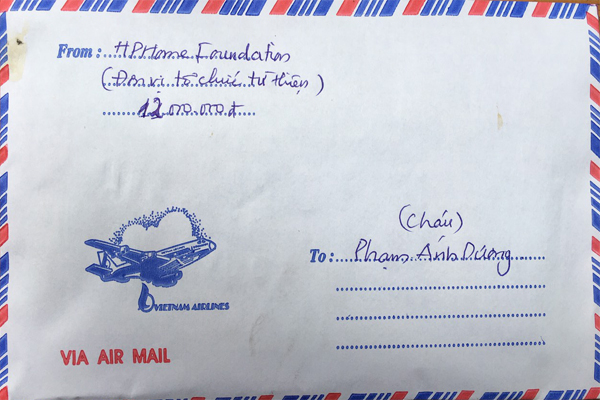 From: HPHome Foundation
(Đơn vị tổ chức từ thiện)
12.000.000đ
(Cháu)
To: Phạm Ánh Dương
VIETNAM AIRLINES
VIA AIR MAIL